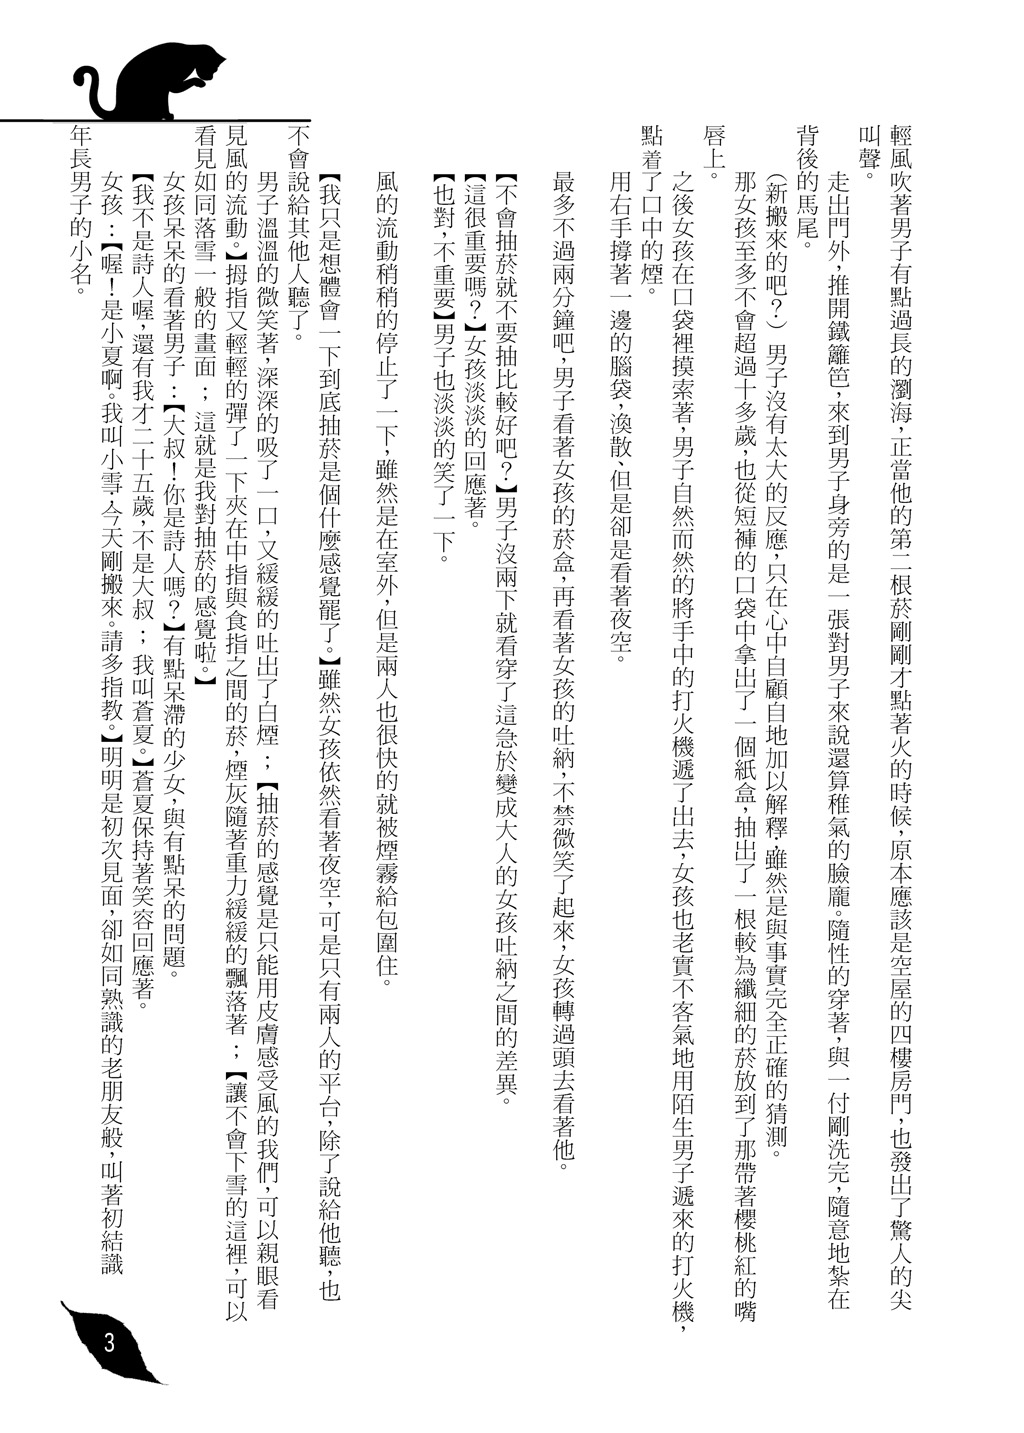 輕風吹著男子有點過長的瀏海，正當他的第二根菸剛剛才點著火的時候，原本應該是空屋的四樓房門，也發出了驚人的尖
叫聲。
走出門外，推開鐵籬笆，來到男子身旁的是一張對男子來說還算稚氣的臉龐。隨性的穿著，與一付剛洗完，隨意地紮在
背後的馬尾。
（新搬來的吧？）男子沒有太大的反應，只在心中自顧自地加以解釋；雖然是與事實完全正確的猜測。
那女孩至多不會超過十多歲，也從短褲的口袋中拿出了一個紙盒，抽出了一根較為纖細的菸放到了那帶著櫻桃紅的嘴
唇上。
之後女孩在口袋裡摸索著，男子自然而然的將手中的打火機遞了出去，女孩也老實不客氣地用陌生男子遞來的打火機，
點着了口中的煙。
用右手撐著一邊的腦袋，渙散、但是卻是看著夜空。
最多不過兩分鐘吧，男子看著女孩的菸盒，再看著女孩的吐納，不禁微笑了起來，女孩轉過頭去看著他。
【不會抽菸就不要抽比較好吧？】男子沒兩下就看穿了這急於變成大人的女孩吐納之間的差異。
【這很重要嗎？】女孩淡淡的回應著。
【也對，不重要】男子也淡淡的笑了一下。
風的流動稍稍的停止了一下，雖然是在室外，但是兩人也很快的就被煙霧給包圍住。
【我只是想體會一下到底抽菸是個什麼感覺罷了。】雖然女孩依然看著夜空，可是只有兩人的平台，除了說給他聽，也
不會說給其他人聽了。
男子溫溫的微笑著，深深的吸了一口，又緩緩的吐出了白煙；【抽菸的感覺是只能用皮膚感受風的我們，可以親眼看
見風的流動。】拇指又輕輕的彈了一下夾在中指與食指之間的菸，煙灰隨著重力緩緩的飄落著；【讓不會下雪的這裡，可以
看見如同落雪一般的畫面；這就是我對抽菸的感覺啦。】
女孩呆呆的看著男子：【大叔！你是詩人嗎？】有點呆滯的少女，與有點呆的問題。
【我不是詩人喔，還有我才二十五歲，不是大叔；我叫蒼夏。】蒼夏保持著笑容回應著。
女孩：【喔！是小夏啊。我叫小雪；今天剛搬來。請多指教。】明明是初次見面，卻如同熟識的老朋友般，叫著初結識
年長男子的小名。
3